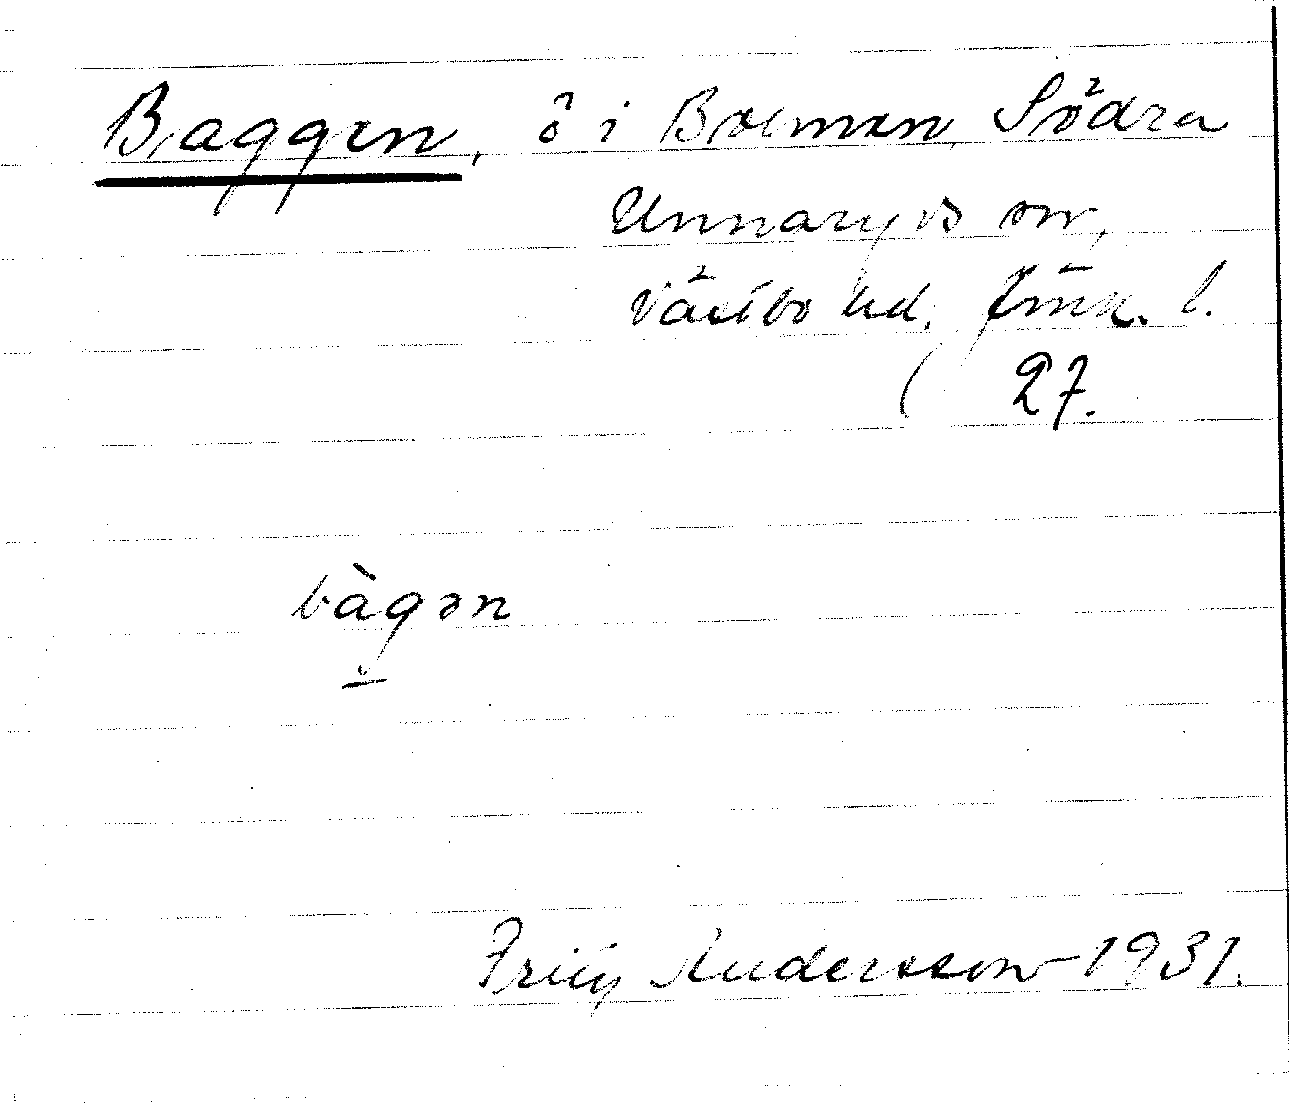 Baggen, ö i Bolmen, Södra
Unnaryds sn,
Västbo hd. Jönk. l.
( 27.
bàgən
Frity Andersson 1931.